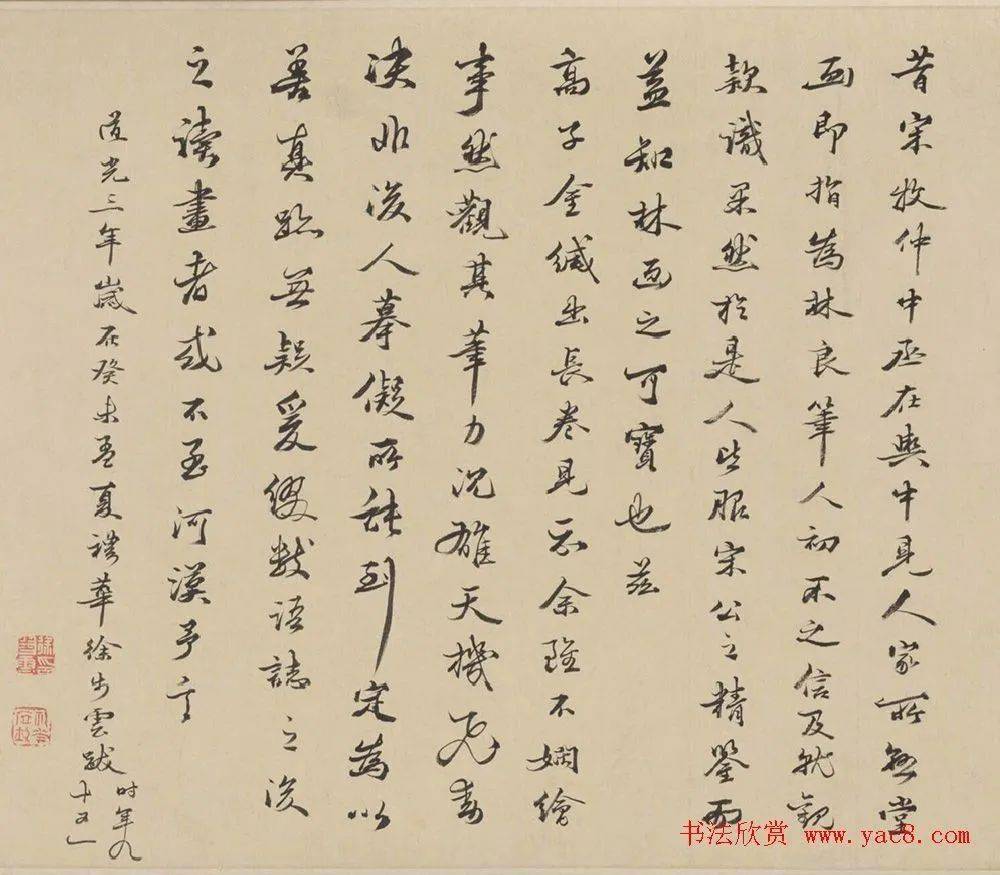 昔宋牧仲中丞在輿中見人家所懸堂
画即指為林良筆人初不之信及就觀
款識果然於是人皆服宋公之精鑒而
益知林画之可寶也茲
高子金緘出長卷見示余雖不嫻繪
事然觀其筆力沉雄天機飛
決非後人摹儗所能到定為以
善真跡無疑爰綴数語誌之後
之讀畫者或不至河漢予言
道光三年歲在癸未孟夏禮華徐步雲跋
時年九
十又一
书法欣赏 www.yac8.com